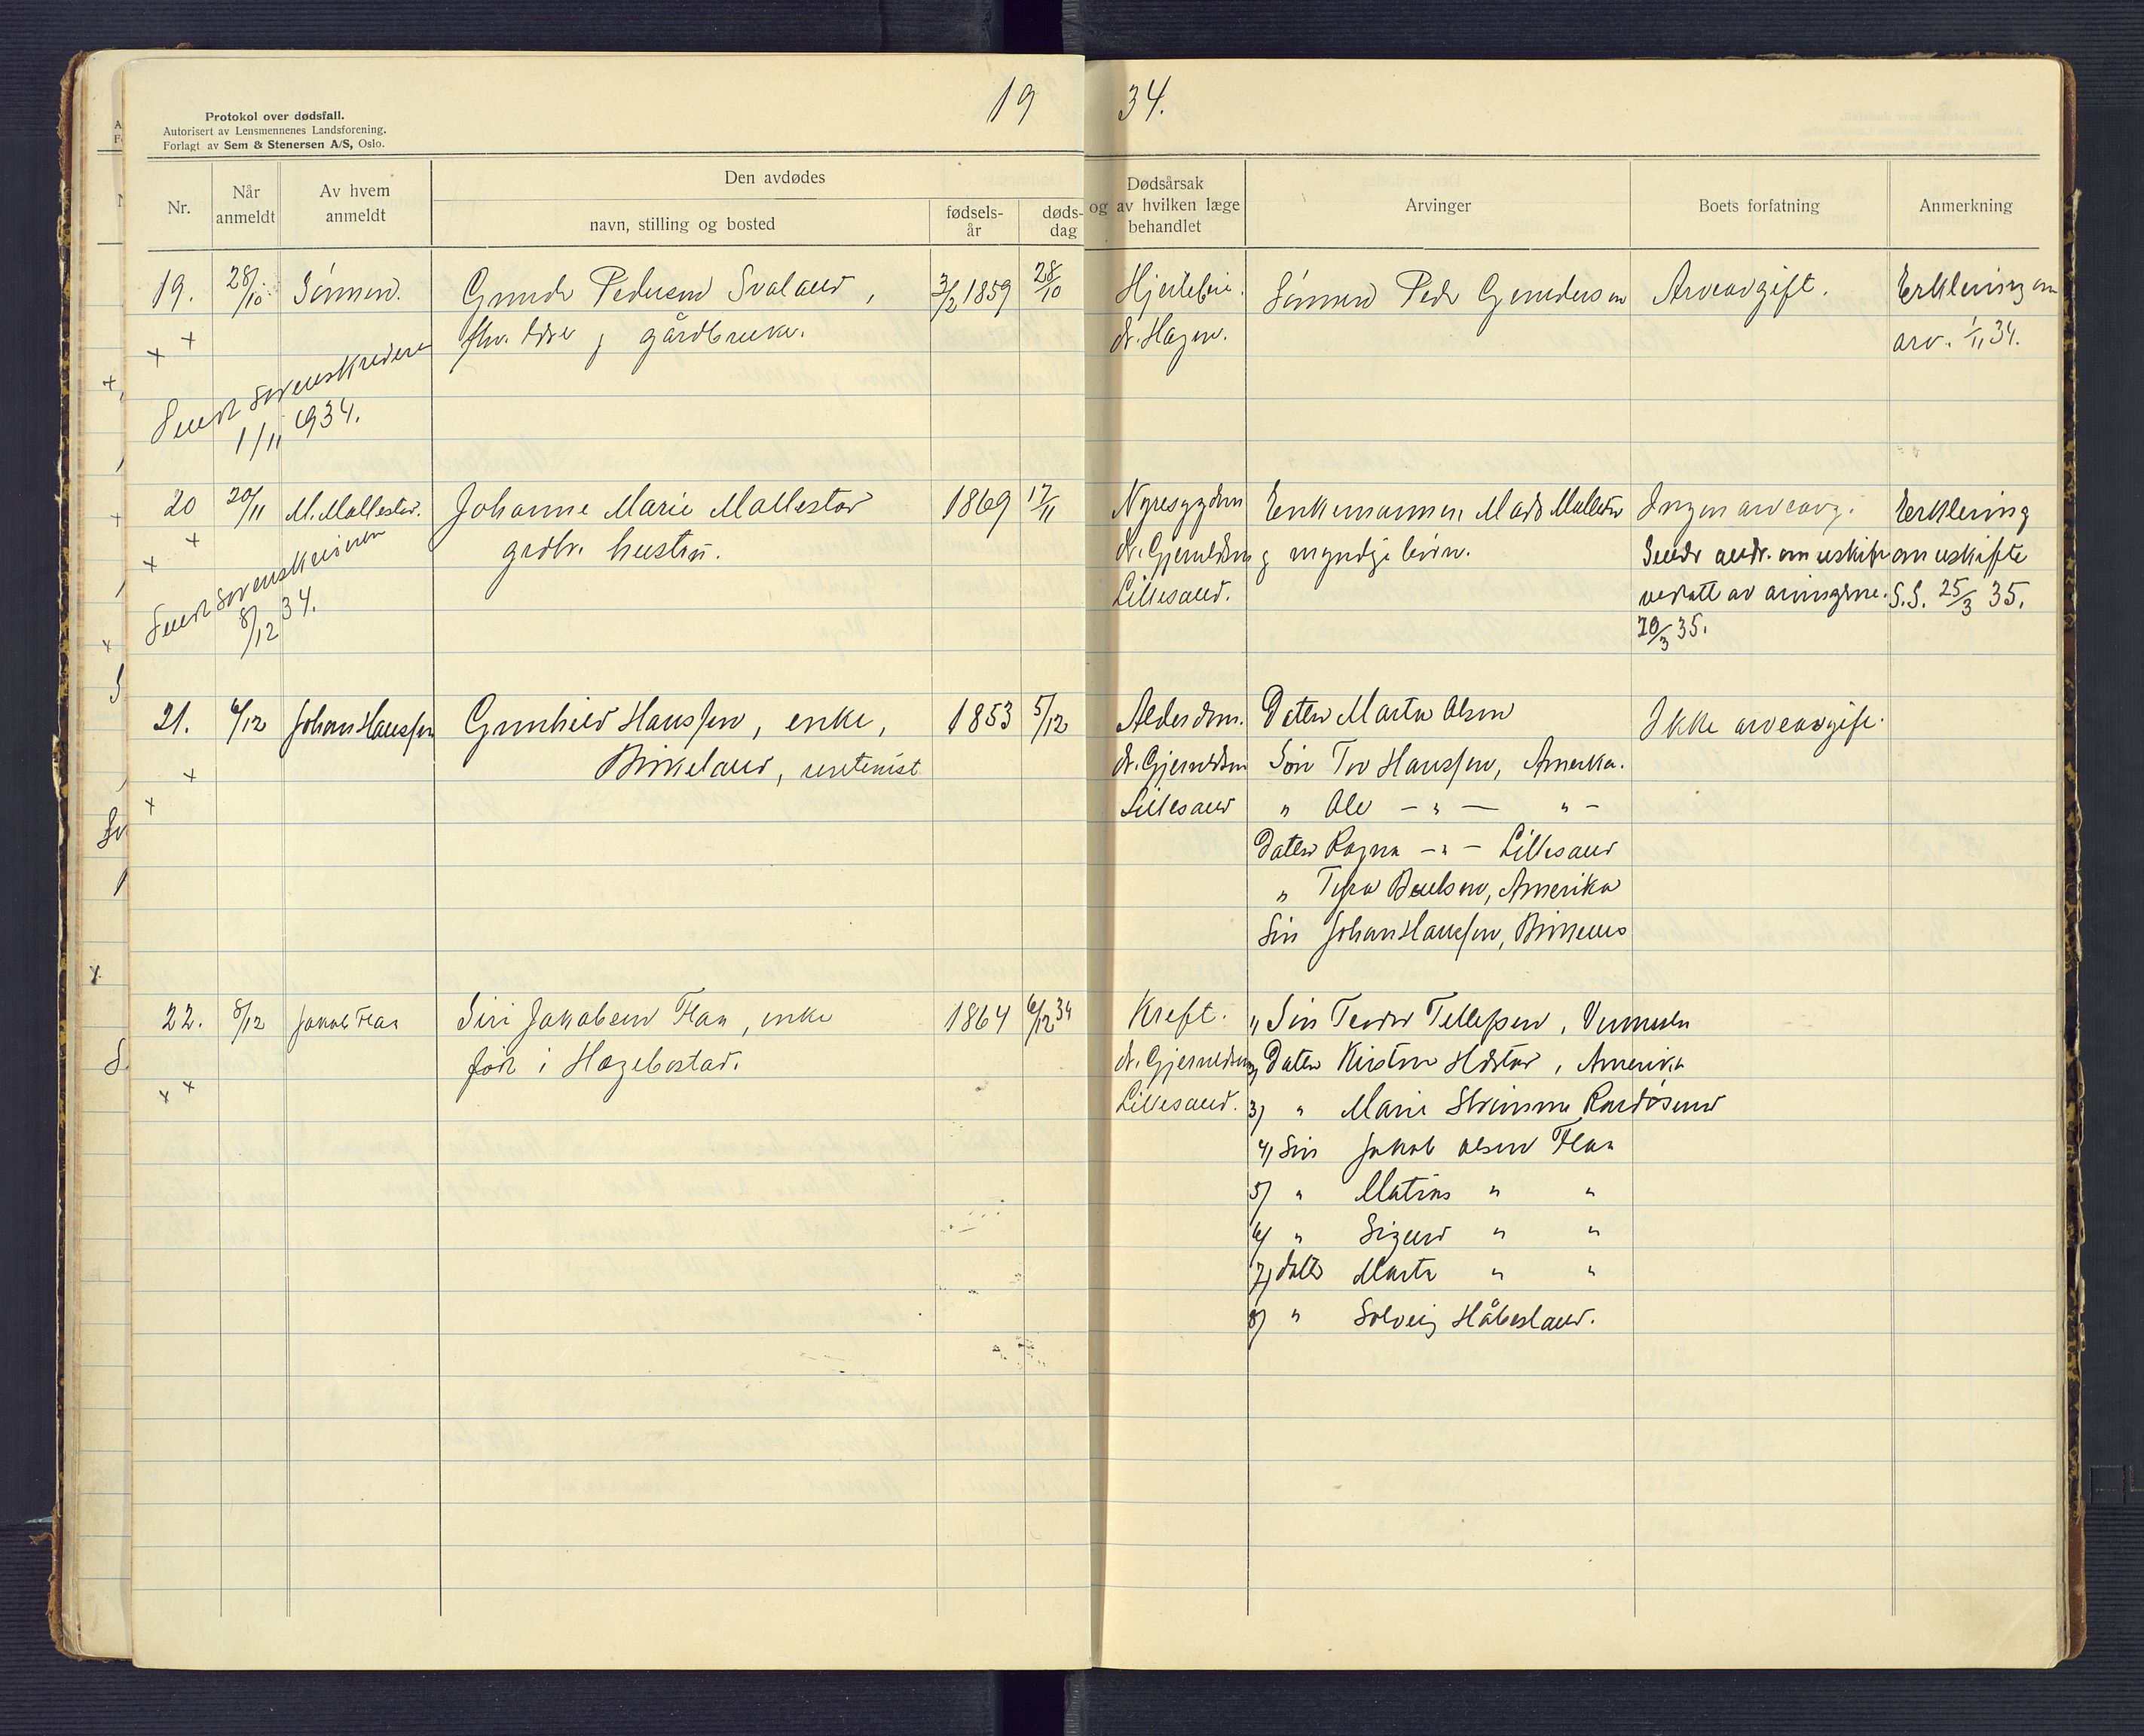 19 34.
Protokol over dødsfall.
Autorisert av Lensmennenes Landsforening.
Forlagt av Sem & Stenersen A/S, Oslo.
Nr.
Når anmeldt
Av hvem anmeldt
Den avdødes
navn, stilling og bosted
fødsels-år
døds-dag
Dødsårsak og av hvilken læge behandlet
Arvinger
Boets forfatning
Anmerkning
19. 28/10 Sønnen. Gunder Pedersen Svaland, 3/2 1859 28/10 Hjertefeil. Sønnen Peder Gundersen Arveavgift. Erklering om
fhv. og gårdbruker. dr. Hagen. arv. 1/11 34.
Sendt Sorenskriveren
1/11 1934.
20 20/11 M. Mollestad. Johanne Marie Mollestad 1869 17/11 Nyresygdom Enkemannen Mads Mollestad Ingen arveavg. Erklering
grdbr. hustru. dr. Gjeruldsen og myndige børn. Sendt andr. om uskifte om uskifte
Lillesand. vedtatt av arvingerne. S.S. 25/3 35.
20/3 35.
Sendt Sorenskriveren
8/12 34.
21. 6/12 Johan Hanssen Gunhild Hanssen, enke, 1853 5/12 Alderdom. Datter Marta Olsen Ikke arveavgift.
Birkeland, rentenist dr. Gjeruldsen Søn Tor Hanssen, Amerika.
Lillesand " Ole - " - " -
Datter Ragna - " - Lillesand
" Amerika
Søn Johan Hanssen, Birkenes
22. 8/12 Jakob Flaa Siri Jakobsen Flaa, enke 1864 6/12 34 Kreft. 1) Søn Tellefsen, Vennesla
født i Hægebostad. dr. Gjeruldsen 2) Datter Kirsten Amerika
Lillesand. 3) " Marie Randøsund
4) Søn Jakob Olsen Flaa
5) " Matias " "
6) " Sigurd " "
7) datter Marta " "
8) " Solveig Håbesland.